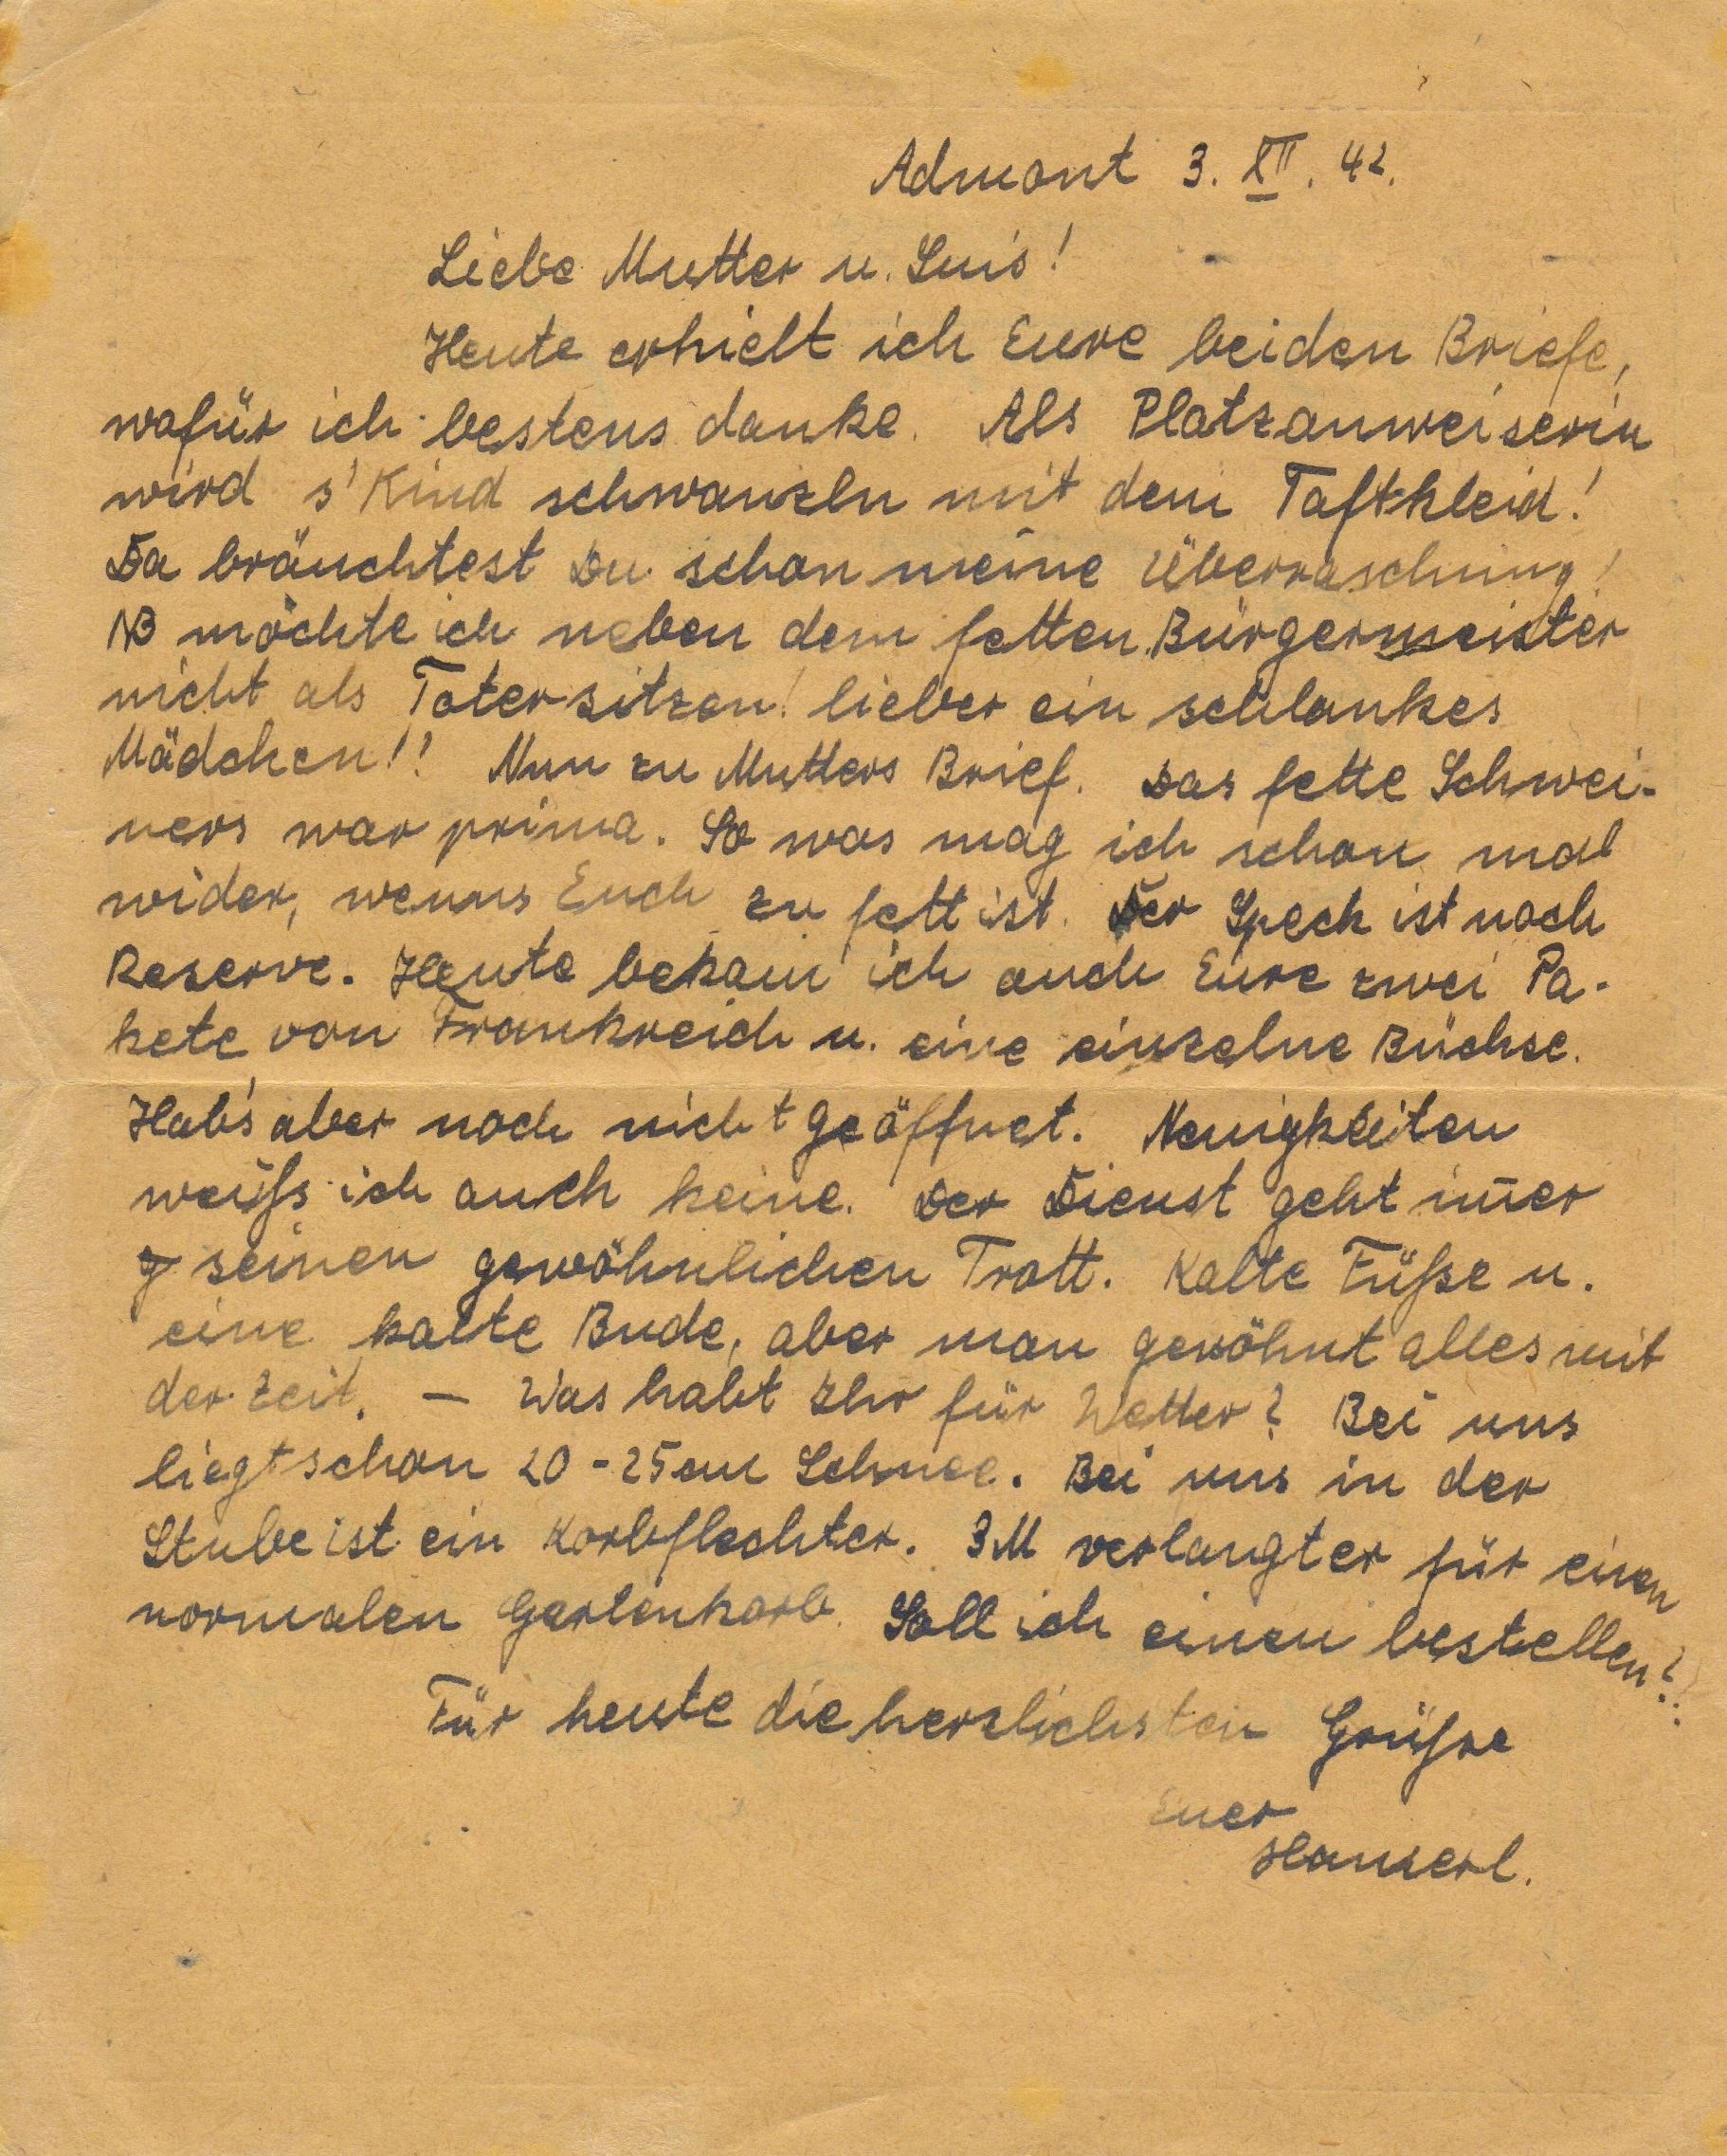 Admont 3. XII. 42.
Liebe Mutter u. Luis!
Heute erhielt ich Eure beiden Briefe,
wofür ich bestens danke. Als Platzanweiserin
wird s'Kind schwanzln mit dem Taftkleid!
Da bräuchtest Du schon meine Überraschung!
NB möchte ich neben dem fetten Bürgermeister
nicht als Toter sitzen! lieber ein schlankes
Mädchen!! Nun zu Mutters Brief. Das fette Schwei-
ners war prima. So was mag ich schon mal
wider, wenns Euch zu fett ist. Der Speck ist noch
Reserve. Heute bekam ich auch Eure zwei Pa-
kete von Frankreich u. eine einzelne Büchse.
Hab's aber noch nicht geöffnet. Neuigkeiten
weiß ich auch keine. Der Dienst geht im̄er
seinen gewöhnlichen Trott. Kalte Füße u.
eine kalte Bude, aber man gewöhnt alles mit
der Zeit. — Was habt Ihr für Wetter? Bei uns
liegt schon 20-25 cm Schnee. Bei uns in der
Stube ist ein Korbflechter. 3M verlangt er für einen
normalen Gartenkorb. Soll ich einen bestellen?
Für heute die herzlichsten Grüße
Euer
Hanserl.